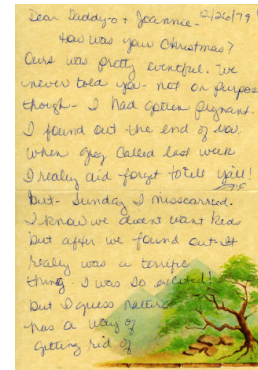 Dear Daddy-o + Joannie - 12/26/79
How was your Christmas?
Ours was pretty eventful. We
never told you - not on purpose
though - I had gotten pregnant.
I found out the end of Nov.
When Greg called last week
I really did forget to tell y'all!
But - Sunday I misscarried.
I know we didn't want kids
but after we found out - it
really was a terrific
thing. I was so excited!
but I guess nature
has a way of
getting rid of